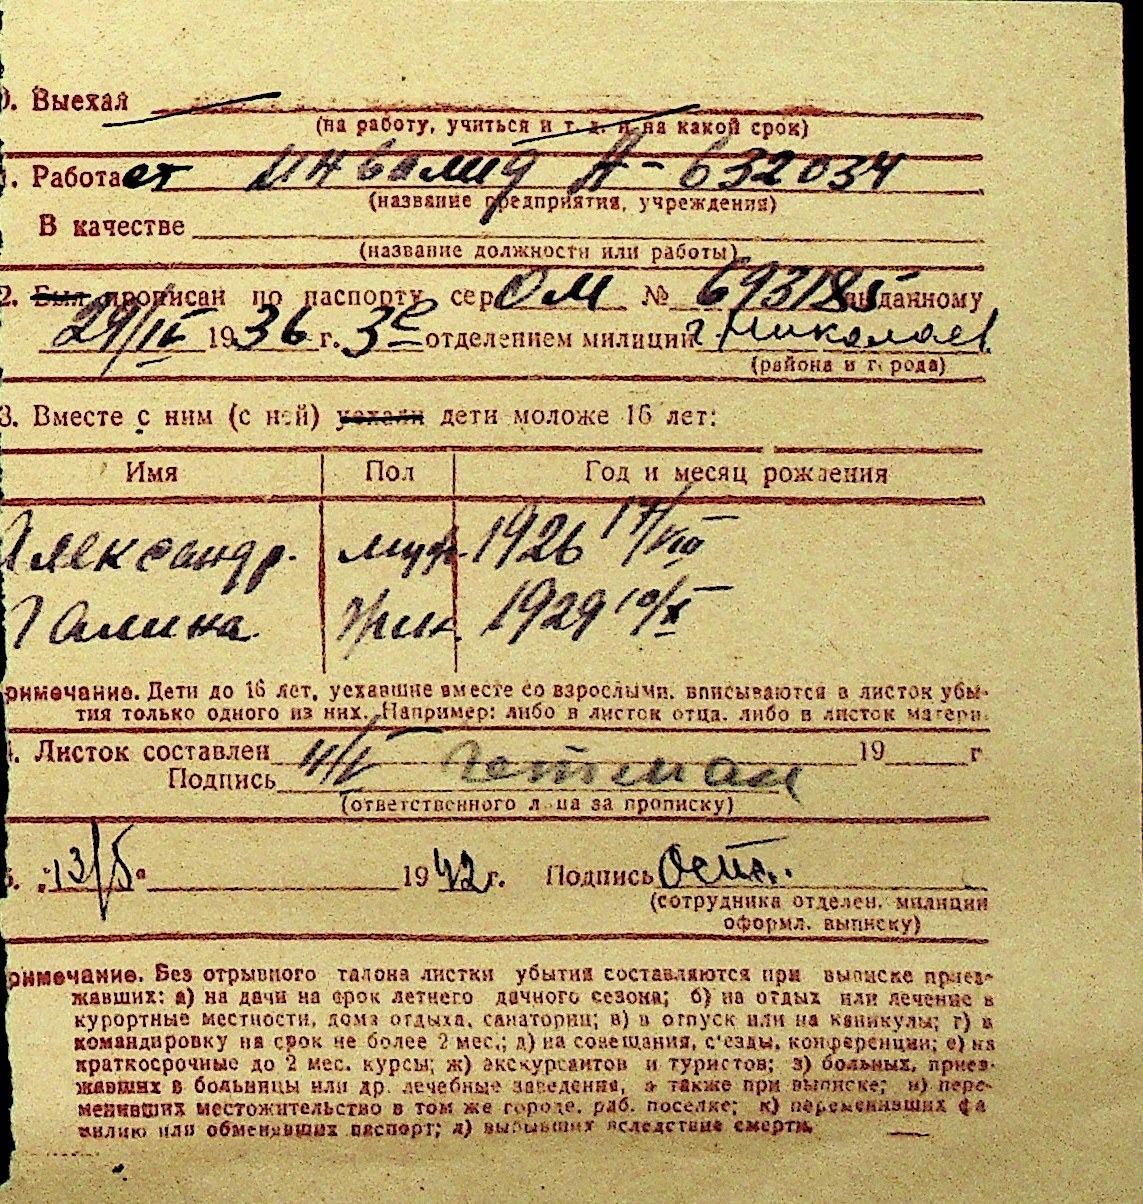 0. Выехал
(на работу, учиться и т. д. и на какой срок)
1. Работает инвалид А-632034
(название предприятия, учреждения)
В качестве
(название должности или работы)
2. Был прописан по паспорту сер. ОМ № 693185 выданному
29/IV 1936 г. 3е отделением милиции г Николаев
(района и города)
3. Вместе с ним (с ней) уехали дети моложе 16 лет:
Имя Пол Год и месяц рождения
Александр. муж. 1926 17/VIII
Галина жен. 1929 10/X
римечание. Дети до 16 лет, уехавшие вместе со взрослыми, вписываются в листок убы-
тия только одного из них. Например: либо в листок отца, либо в листок матери.
4. Листок составлен 11/V 19 г
Подпись Гетман
(ответственного лица за прописку)
5. "13/5" 1942 г. Подпись
(сотрудника отделен. милиции
оформл. выписку)
римечание. Без отрывного талона листки убытия составляются при выписке приез-
жавших: а) на дачи на срок летнего дачного сезона; б) на отдых или лечение в
курортные местности, дома отдыха, санатории; в) в отпуск или на каникулы; г) в
командировку на срок не более 2 мес.; д) на совещания, с'езды, конференции; е) на
краткосрочные до 2 мес. курсы; ж) экскурсантов и туристов; з) больных, приез-
жавших в больницы или др. лечебные заведения, а также при выписке; и) пере-
менивших местожительство в том же городе, раб. поселке; к) переменивших фа
милию или обменявших паспорт; л) выбывших вследствие смерти.